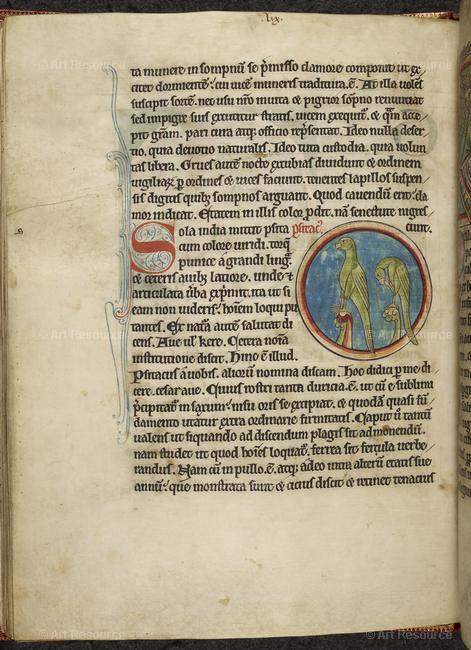 Lx.
ta munere in sompnū se p̄misso clamore componit ut ex/
citet dormientē: cui uicē muneris traditura.ē. At illa uolēs
suscipit sortē. nec usu nr̄o inuita ⁊ pigrior sopno renunciat
sed impigre suis excutitur stratis. uicem exequit̄. ⁊ q̄m acce/
pit gr̄am. pari cura atq; officio rep̄sentat. Ideo nulla deser/
tio. quia deuotio naturalis. Ideo tuta custodia. quia uolun/
tas libera. Grues autē nocte excubias diuidunt ⁊ ordinem
uigiliaꝝ p ordines ⁊ uices faciunt. tenentes lapillos suspen/
sis digitis quibȝ sompnos arguant. Quod cauendū erit: cla
mor indicat. Etatem in illis color ꝓdit. nā senectute nigres/
cunt.
Sola india mittit psita psitac᷒.
cum colore uiridi. torq
puniceo ⁊ grandi lingᵃ.
⁊ ceteris auibȝ latiore. unde ⁊
articulata ũba exp̄mit. ita ut si
eam non uideris: hoīem loqui pu/
tares. Ex natᵃ autē salutat di
cens. Aue ul̄ kere. Cetera noīa
institutione discit. Hinc ē illud.
Psitacus a uobis. aliorū nomina discam. Hoc didici p me di/
cere. cesar aue. Cuius rostri tanta duricia.ē. ut cū e sublimi
p̄cipitat᷒ in saxum: nisu oris se excipiat. ⁊ quodā quasi fū/
damento utatur extra ordinarie firmitatis. Caput ũ tantū
ualens ut siquando ad discendum plagis sit admonendū.
nam studet ut quod hoīes loquat᷒. ferrea sit ferula uerbe/
randus. Nam cū in pullo.ē. atq; adeo intra alterū etatis sue
annū: que monstrata sunt ⁊ cicius discit ⁊ retinet tenacius
© Art Resource
© Art Resource
© Art Resource
© Art Resource